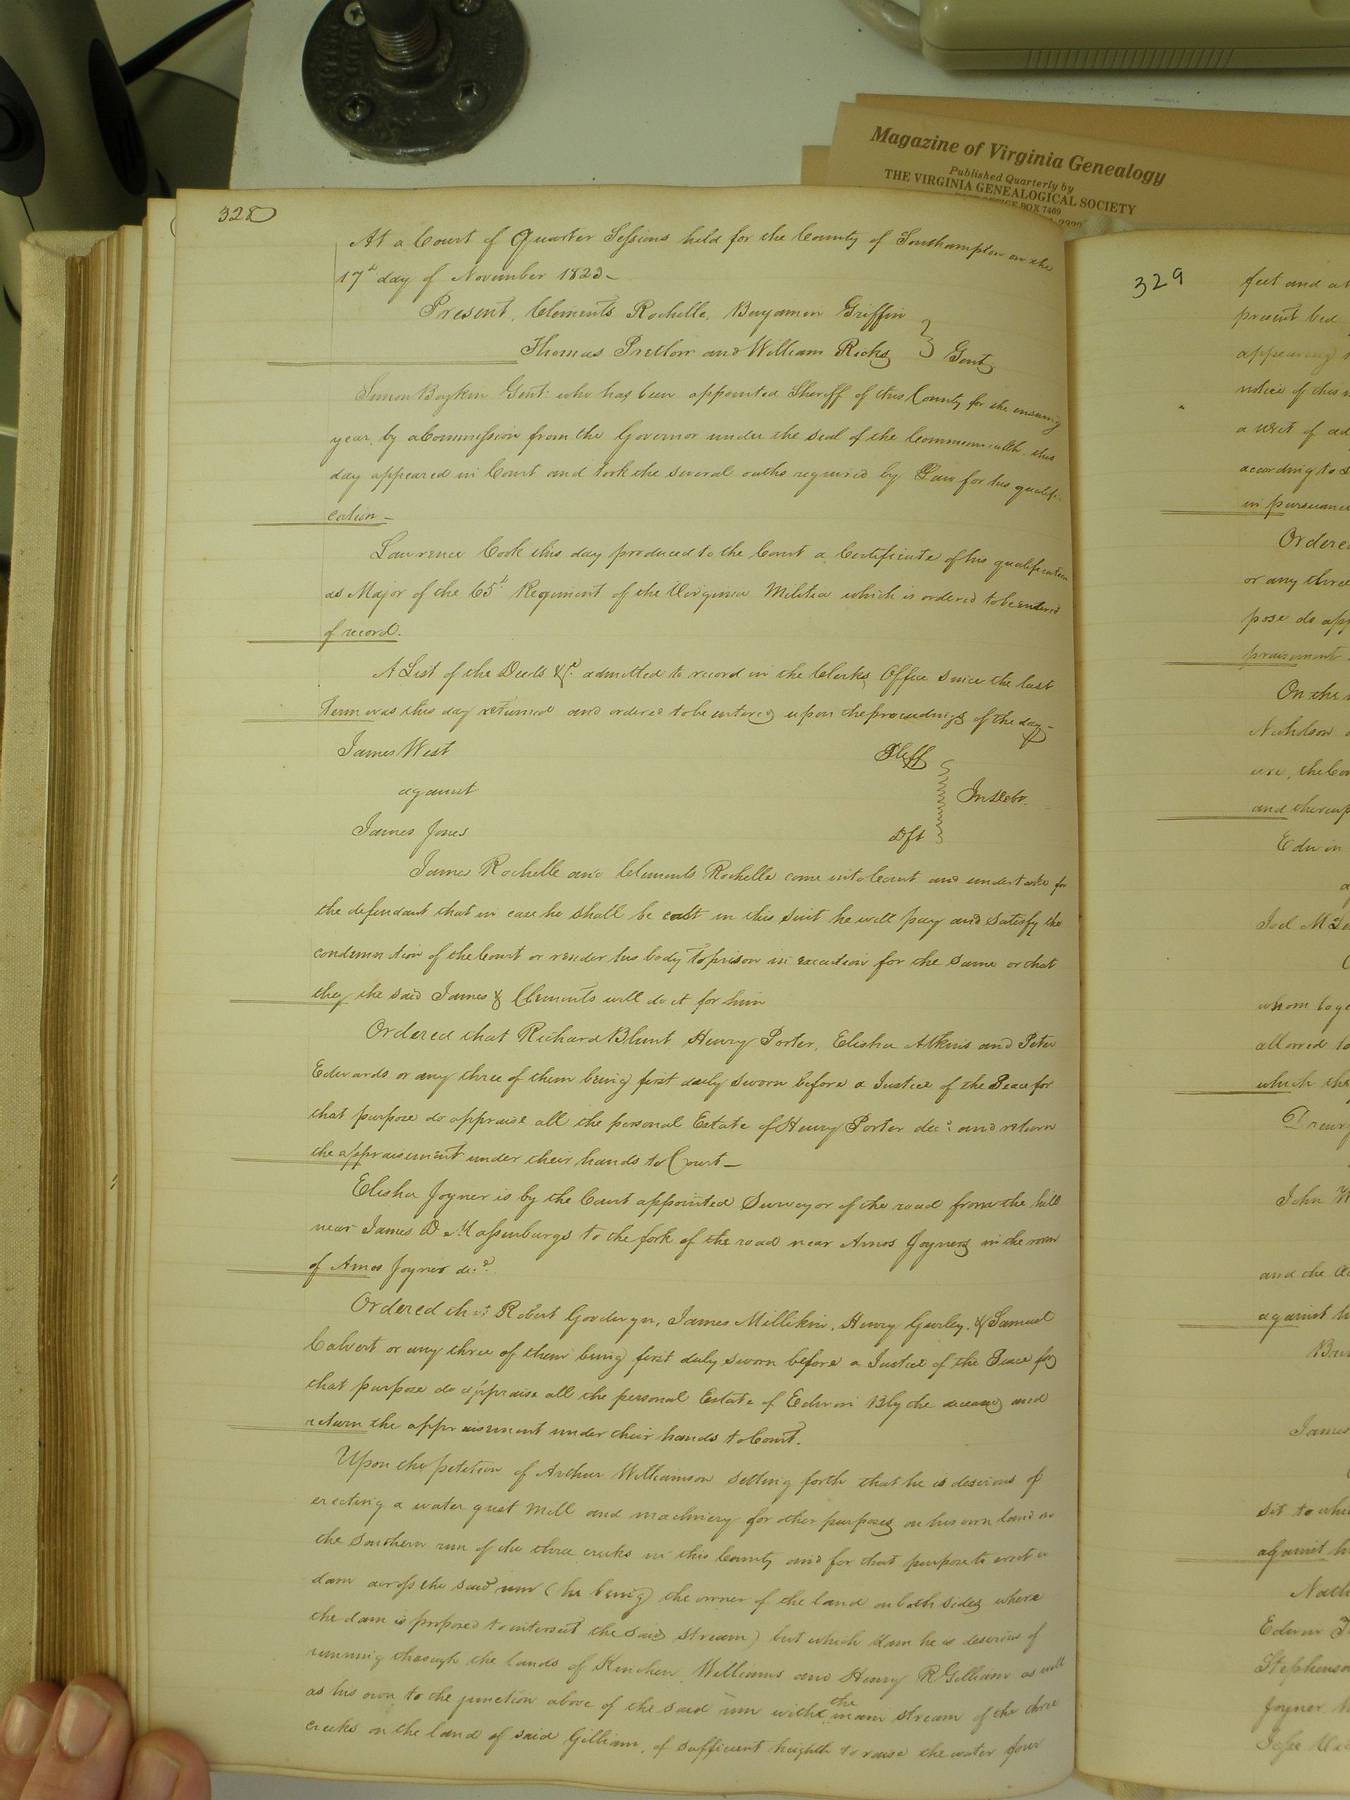 Magazine of Virginia Genealogy
Published Quarterly by
THE VIRGINIA GENEALOGICAL SOCIETY
OFFICE BOX 7469
328
At a Court of Quarter Sessions held for the County of Southampton on the
17th day of November 1823
Present, Clements Rochelle, Benjamin Griffin
Thomas Pretlow and William Ricks } Gent
Simon Boykin Gent: who has been appointed Sheriff of this County for the ensuing
year, by a Commission from the Governor under the seal of the Commonwealth, this
day appeared in Court and took the several oaths required by Law for his qualifi-
cation
Lawrence Cook this day produced to the Court a Certificate of his qualification
as Major of the 65th Regiment of the Virginia Militia which is ordered to be entered
of record.
A List of the Deeds &c. admitted to record in the Clerks Office since the last
Term was this day returned and ordered to be entered upon the proceedings of the day
James West Pltff
against } In Debt.
James Jones Dft
James Rochelle and Clements Rochelle come into Court and undertake for
the defendant that in case he shall be cast in this suit he will pay and satisfy the
condemnation of the Court or render his body to prison in execution for the same or that
they the said James & Clements will do it for him
Ordered that Richard Blunt Henry Porter, Elisha Atkins and Peter
Edwards or any three of them being first duly sworn before a Justice of the Peace for
that purpose do appraise all the personal Estate of Henry Porter decd. and return
the appraisement under their hands to Court
Elisha Joyner is by the Court appointed Surveyor of the road from the hill
near James D Massenburgs to the fork of the road near Amos Joyners in the room
of Amos Joyner decd.
Ordered that Robert Goodwyn, James Millikin, Henry Gurley, & Samuel
Calvert or any three of them being first duly sworn before a Justice of the Peace for
that purpose do appraise all the personal Estate of Edwin Blythe deceased and
return the appraisement under their hands to Court.
Upon the petition of Arthur Williamson setting forth that he is desirous of
erecting a water grist Mill and machinery for other purposes on his own land on
the Southern run of the three creeks in this County and for that purpose to erect a
dam across the said run (he being the owner of the land on both sides where
the dam is proposed to intersect the said stream) but which dam he is desirous of
running through the lands of Kinchen Williams and Henry R Gilliam as well
as his own to the junction above of the said run with the main stream of the three
creeks on the land of said Gilliam, of sufficient heighth to raise the water four
329
feet and
present bed
appearing
notice of this
a writ of ad
according to
in pursuance
Ordered
or any three
pose do app
praisement
On the
Nicholson
are, the
and thereup
Edwin
Joel
whom toge
allowed to
which the
Drewry
John W
and the
against
James
sit to whi
against h
Edwin
Stephenson
Joyner